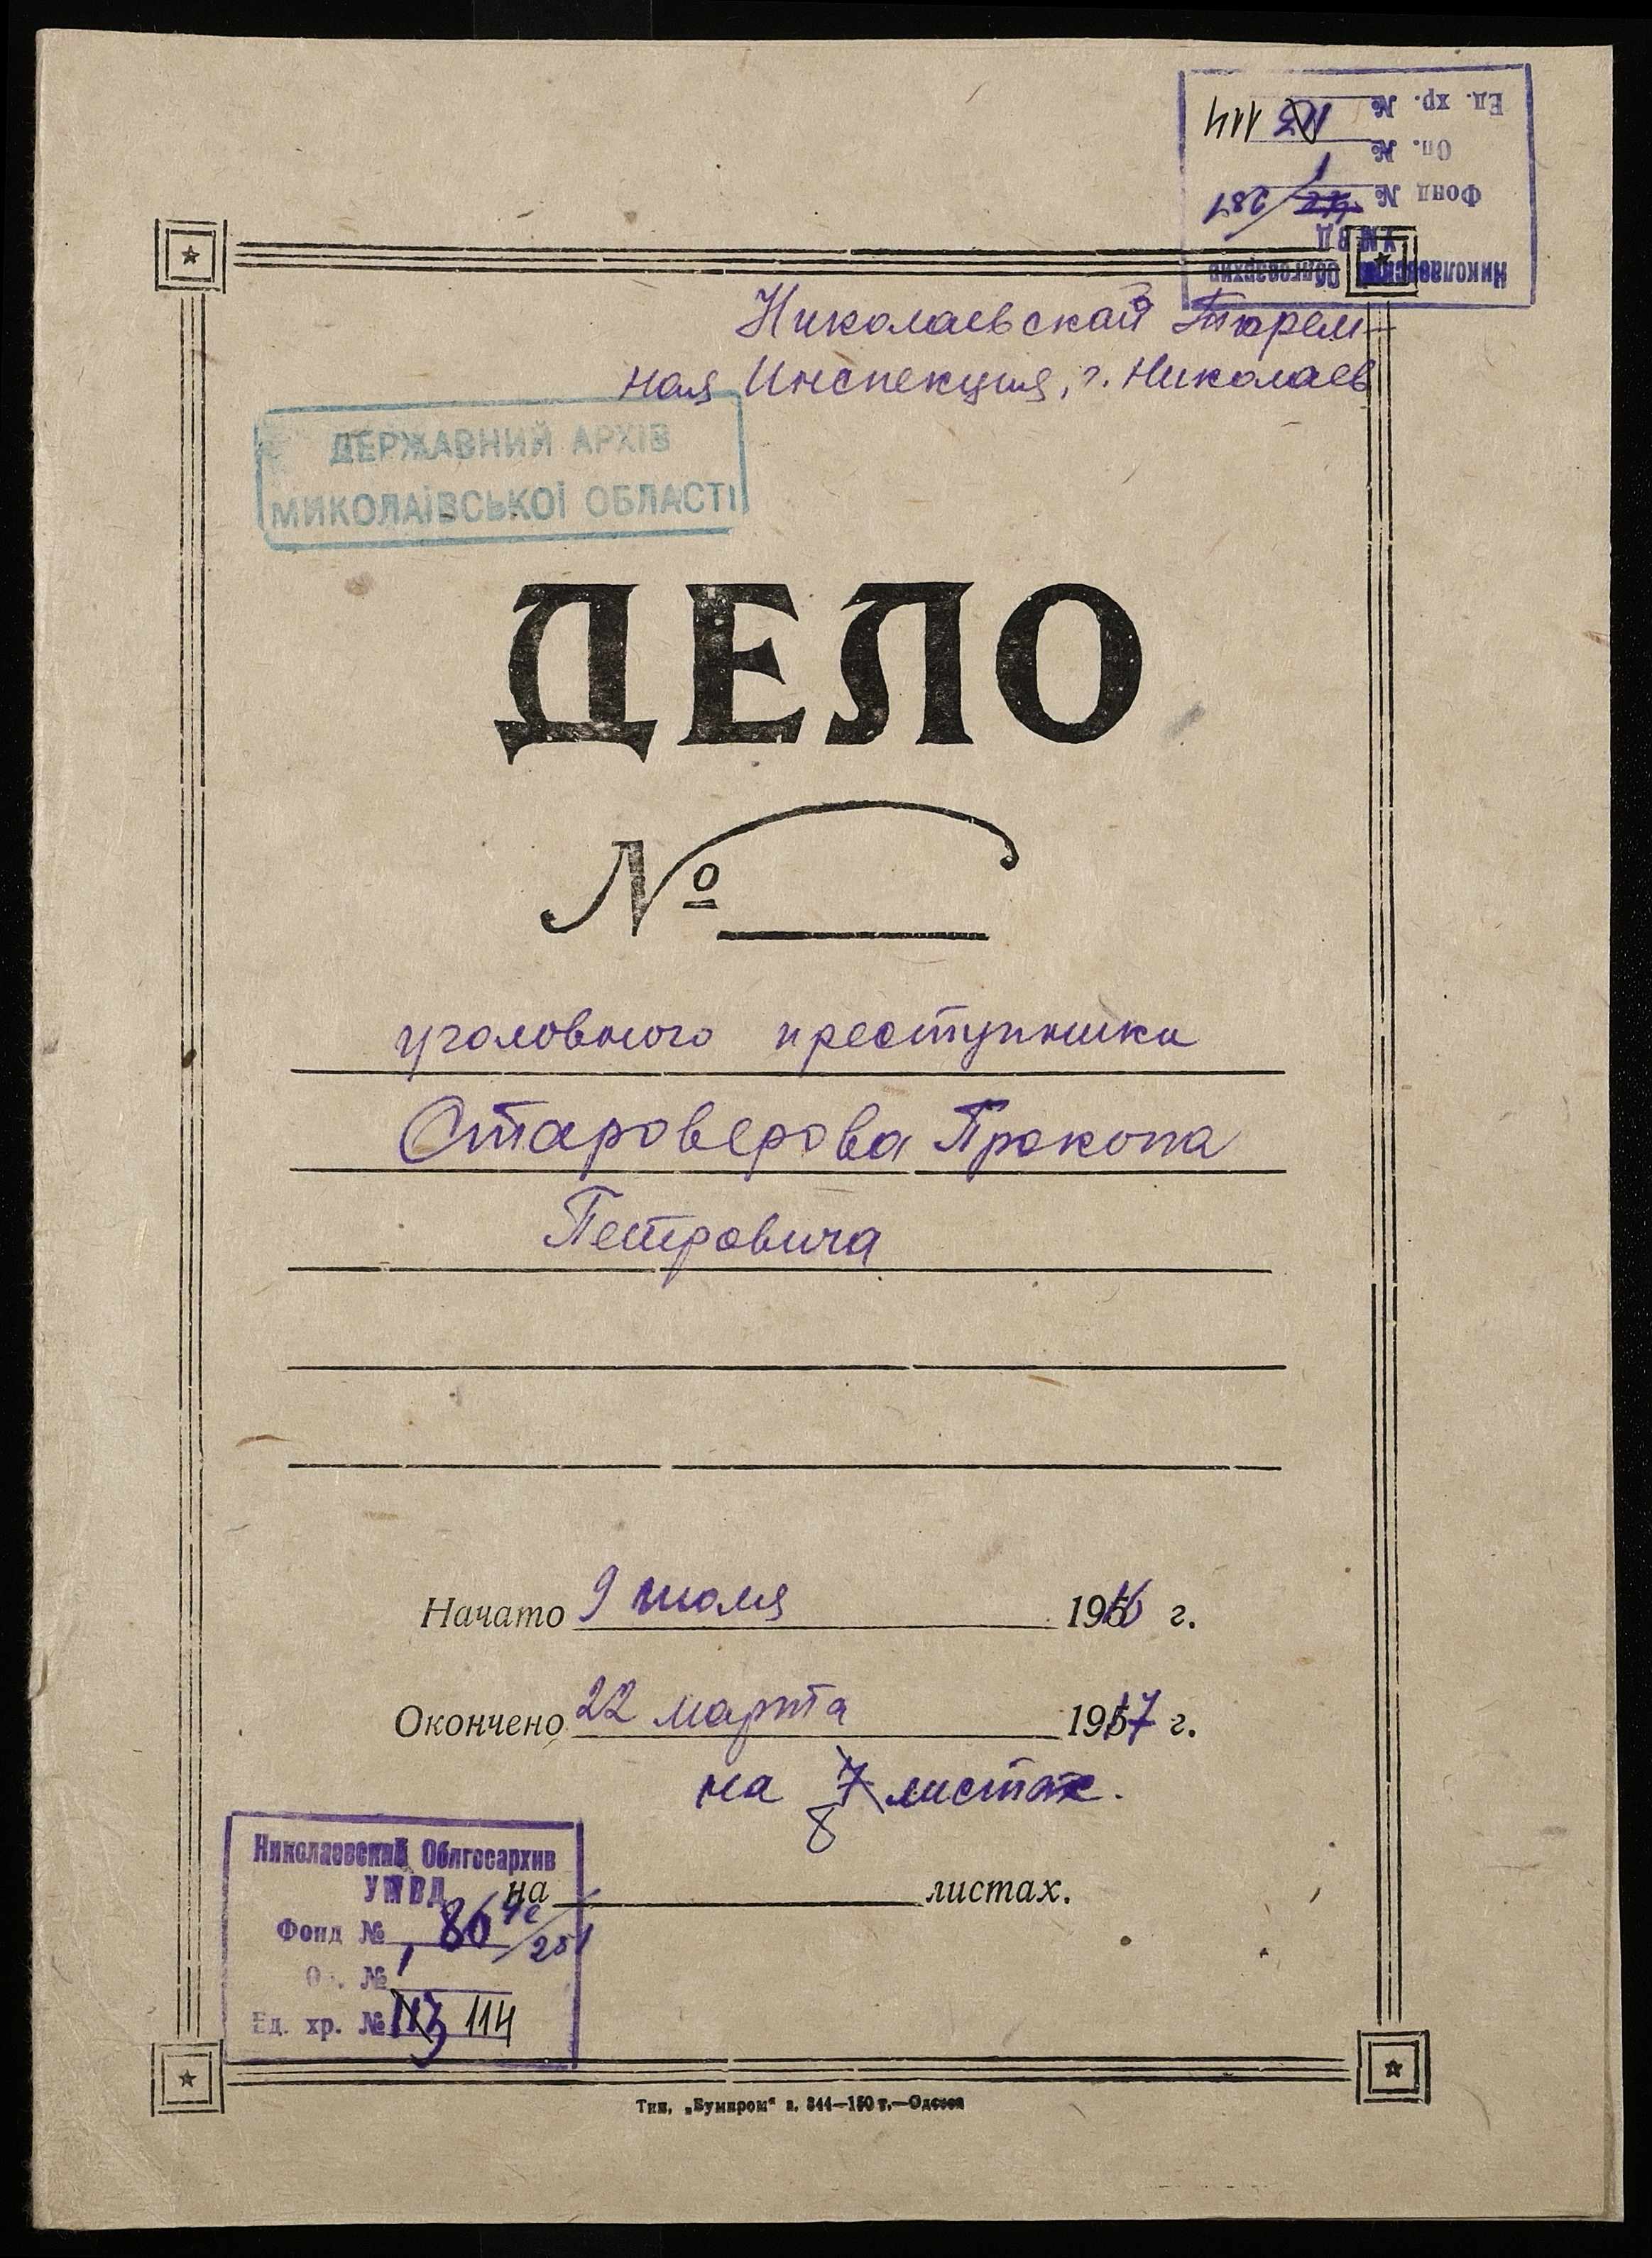 Ед. хр. № 114
Оп. № 1
Фонд № 287
УМВД
Николаевский Облгосархив
Николаевской Тюрем-
ная Инспекция, г. Николаев
ДЕРЖАВНИЙ АРХІВ
МИКОЛАЇВСЬКОЇ ОБЛАСТІ
ДЕЛО
№
уголовного преступника
Староверова Прокопа
Петровича
Начато 9 июля 1916 г.
Окончено 22 марта 1917 г.
на 8 листах.
на листах.
Николаевский Облгосархив
УМВД
Фонд №
Оп. № 1
Ед. хр. № 113 114
Тип. „Бумпром" з. 344—150 т.—Одесса